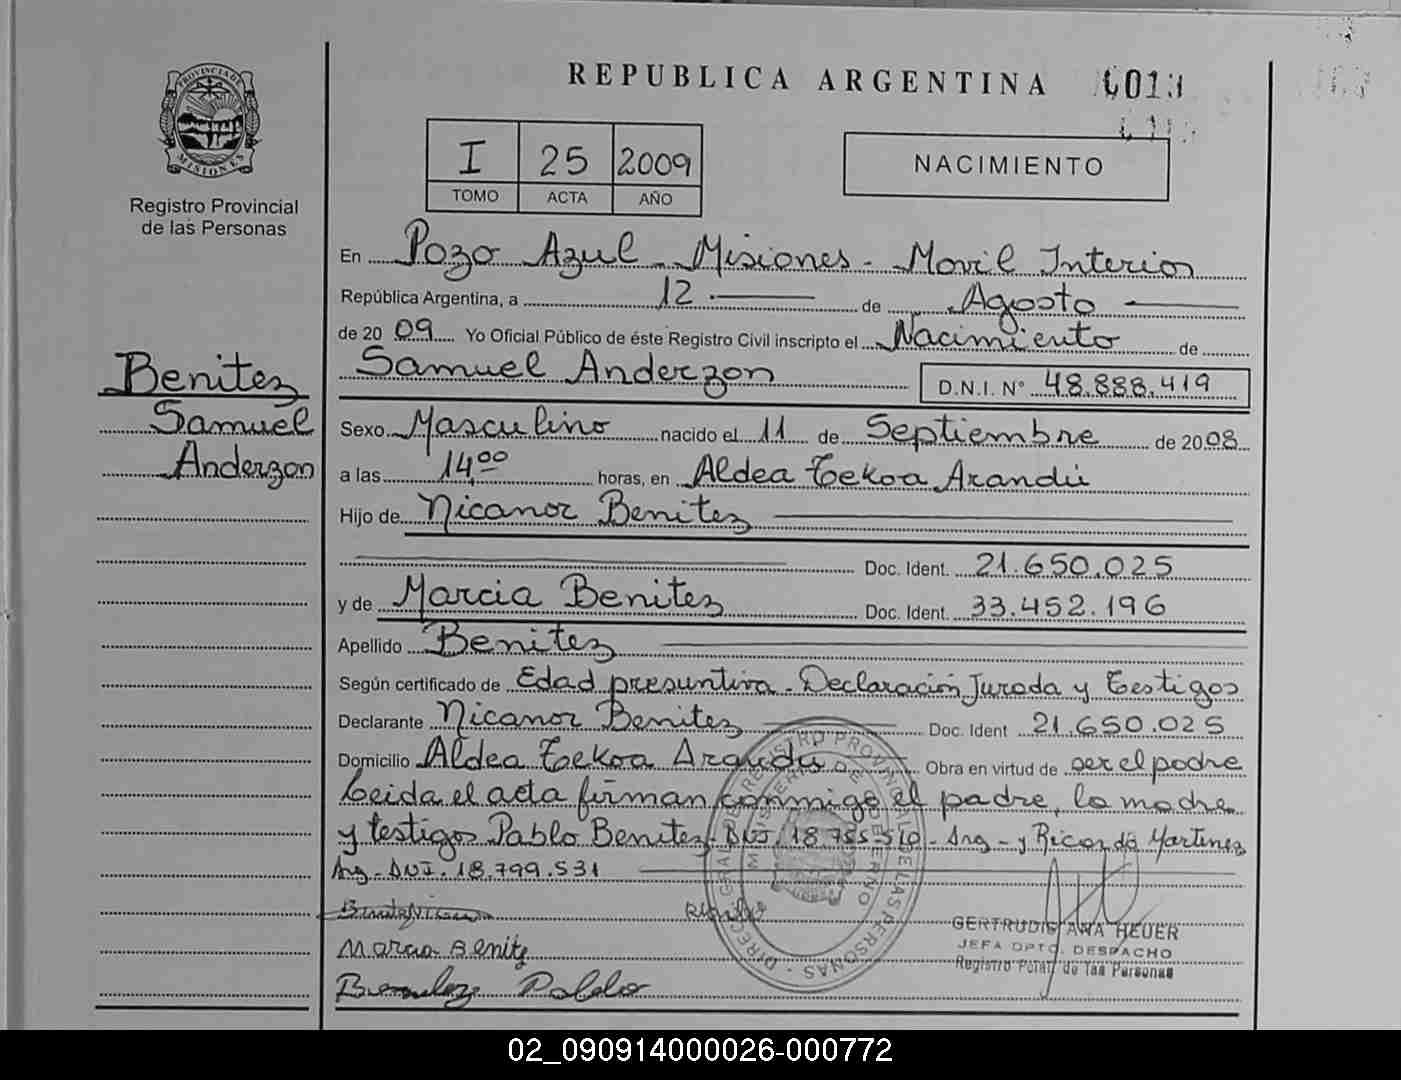 REPUBLICA ARGENTINA
PROVINCIA DE MISIONES
Registro Provincial
de las Personas
I 25 2009
TOMO ACTA AÑO
NACIMIENTO
En Pozo Azul - Misiones - Movil Interior
República Argentina, a 12 de Agosto
de 20 09 Yo Oficial Público de éste Registro Civil inscripto el Nacimiento de
Samuel Anderzon D.N.I. N° 48.888.419
Benitez
Samuel
Anderzon
Sexo Masculino nacido el 11 de Septiembre de 2008
a las 14,00 horas, en Aldea Tekoa Arandú
Hijo de Nicanor Benitez
Doc. Ident. 21.650.025
y de Marcia Benitez Doc. Ident. 33.452.196
Apellido Benitez
Según certificado de Edad presuntiva - Declaración Jurada y Testigos
Declarante Nicanor Benitez Doc. Ident 21.650.025
Domicilio Aldea Tekoa Arandú Obra en virtud de ser el padre
Leida el acta firman conmigo el padre, la madre
y testigos Pablo Benitez - DNI 18.785.510 - Arg - y Ricardo Martinez
Arg - DNI. 18.799.531
Marcia Benitz
GERTRUDIS ANA HEUER
JEFA DPTO. DESPACHO
Registro Pcial. de las Personas
02_090914000026-000772